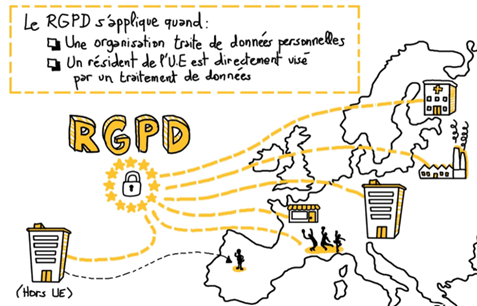 Le RGPD s'applique quand:
Une organisation traite de données personnelles
Un résident de l'U.E est directement visé
par un traitement de données
RGPD
(Hors UE)